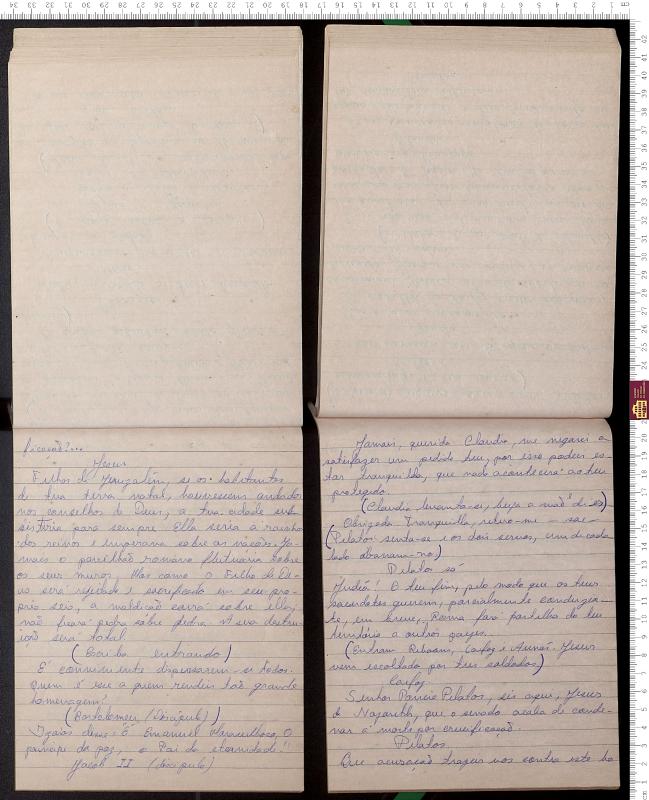 ficação?...
Jesus
Filhos de Jerusalém, se os habitantes
de tua terra natal, houvessem andado
nos conselhos de Deus, a tua cidade sub
sistiria para sempre. Ella seria a rainha
dos reinos e imperaria sobre as nações. Ja-
mais o pavilhão romano flutuaria sobre
os seus muros. Mas como o Filho de De-
us será rejeitado e sacrificado em seu pro-
prio seio, a maldição cairá sobre ella,
não ficará pedra sobre pedra. A sua destru-
ição será total.
(Escriba entrando)
É conveniente dispersarem-se todos.
Quem é esse a quem rendeis tão grande
homenagem?
(Bartolomeu (discipulo))
Izaias disse: É Emanuel Maravilhoso, O
principe da paz, o Pai da eternidade!!
Jacob II (discipulo)
Jamais, querida Claudia, me negarei a
satisfazer um pedido teu, por isso podeis es-
tar tranquilla, que nada acontecerá ao teu
protegido.
(Claudia levanta-se, beija a mão e diz)
Obrigada. Tranquilla, retiro-me - sae -
(Pilatos senta-se e os dois servos, um de cada
lado abanam-no)
Pilatos só
Judéa! O teu fim, pelo modo que os teus
sacerdotes querem, parcialmente conduzen-
te, em breve, Roma fará partilha do teu
territorio a outros paizes.
(Entram Caifaz e Jesus
vem escoltado por tres soldados)
Caifaz.
Senhor Poncio Pilatos, eis aqui, Jesus
de Nazareth, que o senado acaba de conde-
nar á morte por crucificação.
Pilatos.
Que acusação trazeis vós contra este ho